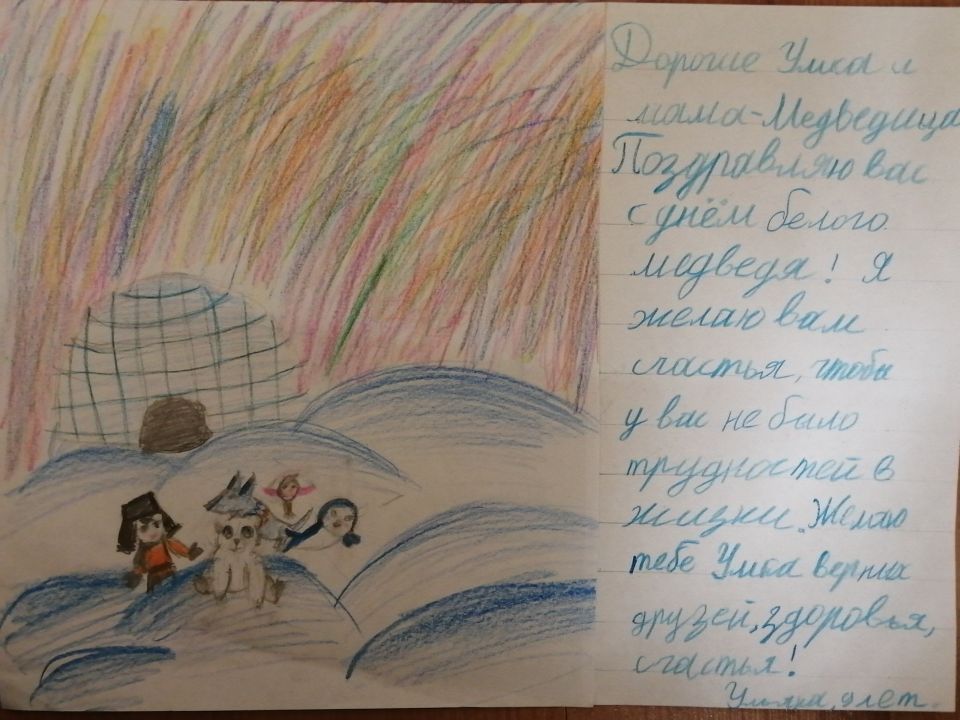 Дорогие Умка и
мама-Медведица
Поздравляю вас
с днём белого
медведя! Я
желаю вам
счастья, чтобы
у вас не было
трудностей в
жизни. Желаю
тебе Умка верных
друзей, здоровья,
счастья!
Ульяна, 9 лет.